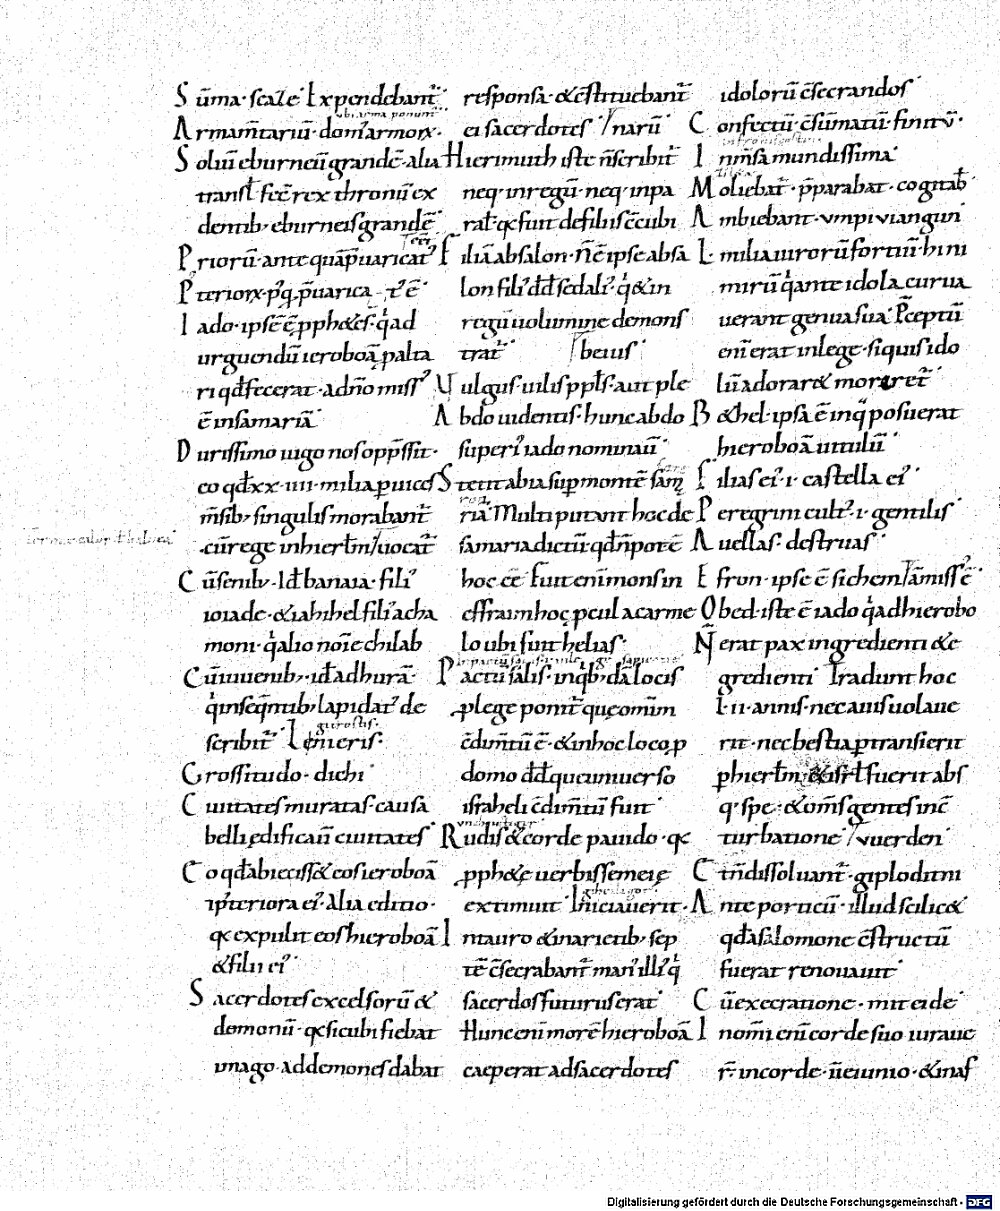 Sūma· scale· Expendebant̄
ubi arma ponunt
Armam̄tariū· dom' armoꝝ·
Soliū eburneū grandē· alia
transl̄· fec̄ rex thronū ex
dentib; eburneis grandē
Priorū· antequā p̄uaricat'
P'terioꝝ· p'q̄ p̄uarica
Iado· ipse ē pph&es· q̇ ad
urguendū ieroboā palta
ri qđ fecerat· a dn̄o miss'
ē in samariā·
Durissimo iugo nos opp̄ssit·
eo qđ xx· iiii· milia p uices
m̄sib; singulis morabant̄
cū rege in hierl̄m uocat̄
Cū senib; Iđ banaia· fili'
ioiade· & iahihel fili' acha
moni· q̇ alio noīe chilab
Cū iuuenib; iđ adhurā·
q̇ in seqn̄tib; lapidat' de
scribit̄
Grossitudo· dichi
Ciuitates muratas· causa
belli ędificauit ciuitates
Co qđ abieciss& eos ieroboā
ip'teriora ei' Alia editio·
qꝫ expulit eos hieroboā
& filii ei'
Sacerdotes excelsorū &
demonū· qꝫ sicubi fiebat
imago· ad demones dabat
responsa· & c̄stituebant̄
ei sacerdotes narū
Hierimuth iste n̄ scribit̄
neq· in regū· neq· in pa
ral· qꝫ fuit de filiis ēcubi
Filiā absalon· n̄ ē ipse absa
lon fili' dđ sed ali'· q̇ & in
regū uolumine demons
trat̄ beius
Vulgus· uilis pp̄ls· aut ple
Abdo uidentis· hunc abdo
superi' iado nominauī
Stetit abia sup monte sam
riā Multi putant hoc de
samaria dictū qđ n̄ pot ē
hoc ēē Fuit enī mons in
effraim hoc pcul a carme
lo ubi sunt helias·
Pactū salis· in q̇b; dā locis
p lege ponit̄ quę om̄im
c̄dim̄tū ē· & in hoc loco p
domo dđ que uniuerso
israheli c̄dim̄tū fuit
Rudis & corde pauido· qꝫ
pph&ę uerbis semeię
extimuit Iniciauerit·
In auro & in arietib; sep
tē c̄secrabant̄ man' illi' q̇
sacerdos futurus erat
Hunc enī morē hieroboā
caeperat ad sacerdotes
idolorū c̄secrandos
Confectū· c̄sūmatū· finitū·
In m̄sa mundissima
Moliebat̄· p̄parabat· cogitab̄
Ambiebant·
L milia uirorū fortiū· hi ni
mirū q̇ ante idola curua
uerant genua sua P̄ceptū
enī erat in lege· si quis ido
lū adorar& moreret̄
B&hel· ipsa ē in qua posuerat
hieroboā uitulū
Filias ei'· i· castella ei'
Peregrini cult'· i· gentilis
Auellas· destruas
Efron· ipse ē sichem
Obed· iste ē iado q̇ ad hierobo
Nn̄ erat pax ingredienti & e
gredienti Tradunt hoc
L· ii· annis· nec auis uolaue
rit· nec bestia ptransierit
p hierl̄m· & isrl̄ fuerit abs
q· spe· & om̄s gentes in c̄
turbatione vuerdeń
Cūdissoluant̄· giploditni
Ante porticū· illud scilic&
qđ a salomone c̄structū
fuerat renouauit
Cū execratione· miteide
In om̄i enī corde suo iuraue
r̄· in corde· n̄ ieiunio· & in as
Digitalisierung gefördert durch die Deutsche Forschungsgemeinschaft - DFG